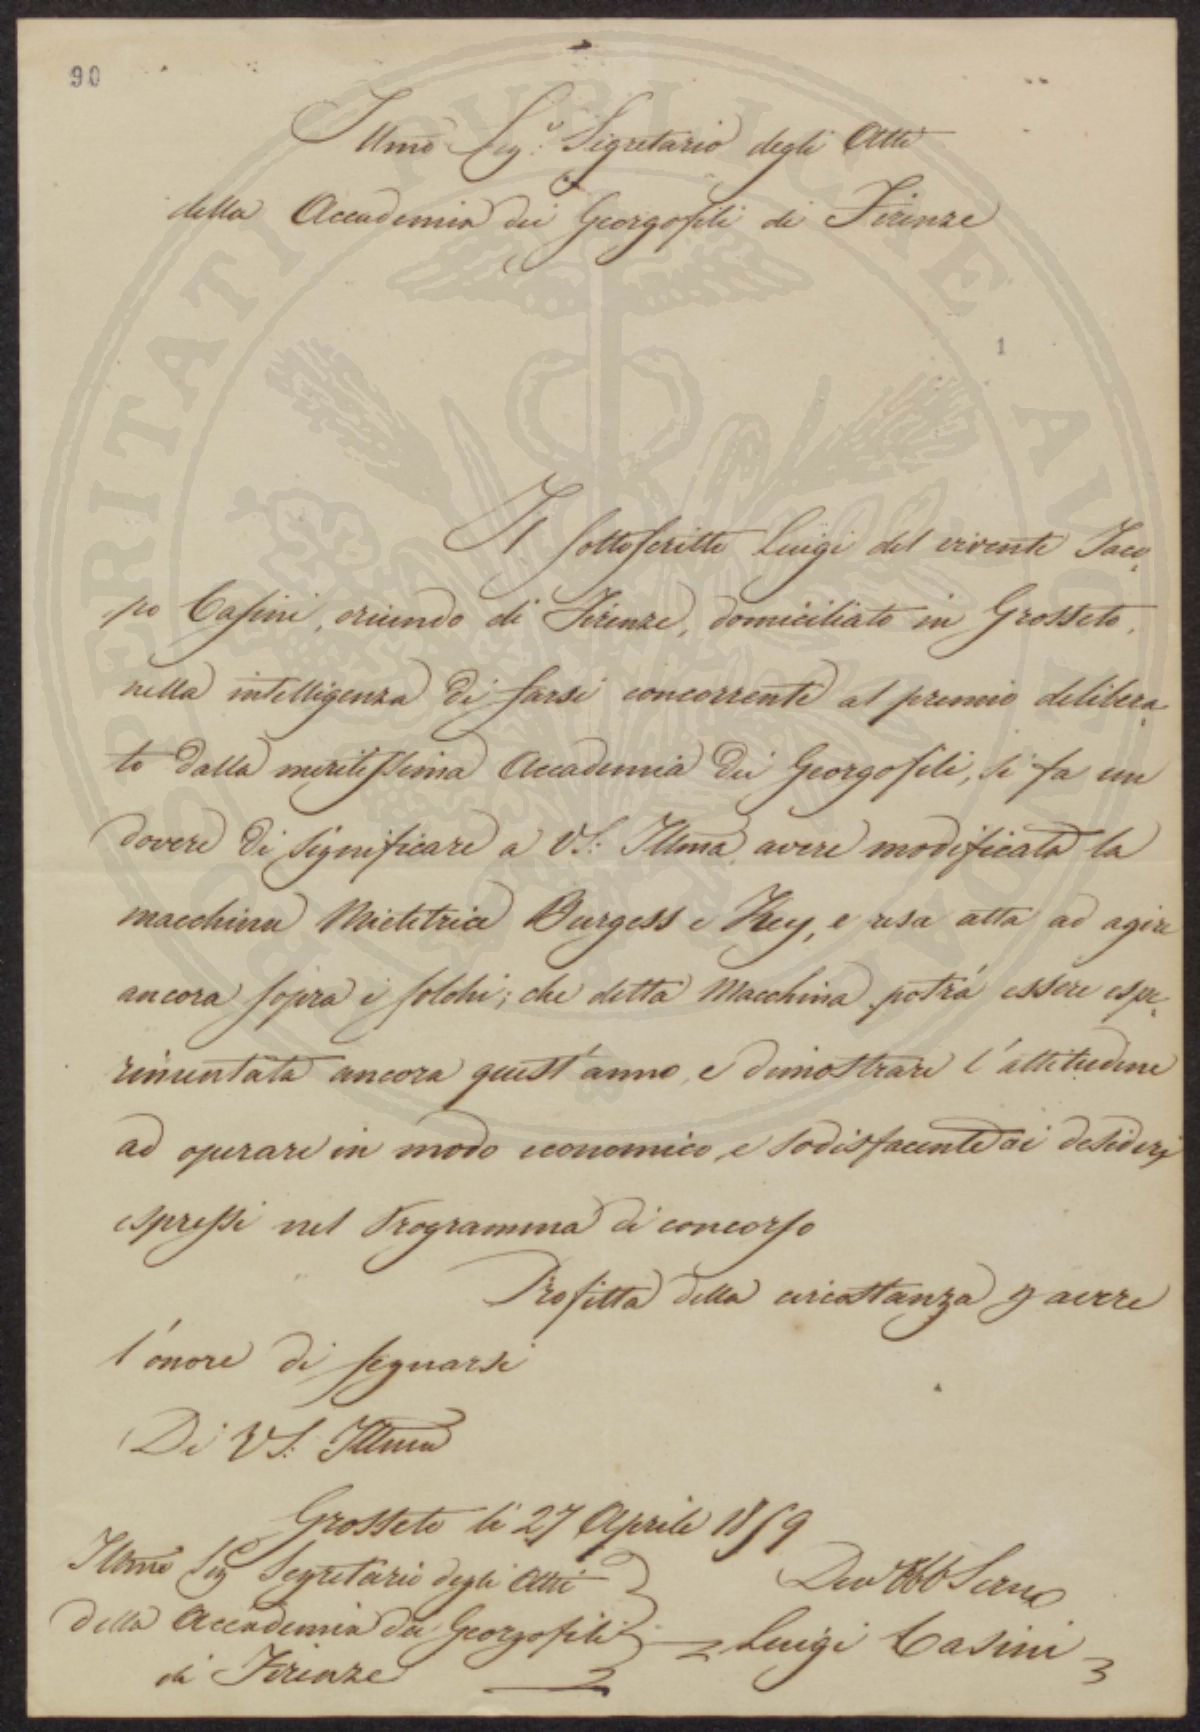 90
Illmo Sig.r Segretario degli Atti
della Accademia dei Georgofili di Firenze
1
Il sottoscritto Luigi del vivente Jaco
po Casini, oriundo di Firenze, domiciliato in Grosseto,
nella intelligenza di farsi concorrente al premio delibera
to dalla meritissima Accademia dei Georgofili, si fa un
dovere di significare a VS: Illma avere modificata la
macchina Mietitrice Burgess e Key, e resa atta ad agire
ancora sopra i solchi; che detta Macchina potrà essere espe
rimentata ancora quest'anno, e dimostrare l'attitudine
ad operare in modo economico, e sodisfacente ai desiderj
espressi nel Programma di concorso
Profitta della circostanza p avere
l'onore di segnarsi
Di VS: Illma
Grosseto li 27 Aprile 1859
Illmo Sig Segretario degli Atti
della Accademia dei Georgofili
di Firenze
Dev Obb Servo
Luigi Casini
PROSPERITATI PUBLICAE AUGENDAE